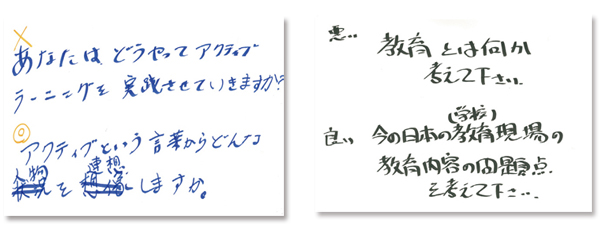 ×
あなたは どうやって アクティブ
ラーニングを 実践させていきますか?
◎
アクティブという言葉からどんな
人物 連想
を しますか。
悪い
教育とは何か
考えて下さい。
(学校)
良い 今の日本の教育現場の
教育内容の問題点
を考えて下さい。